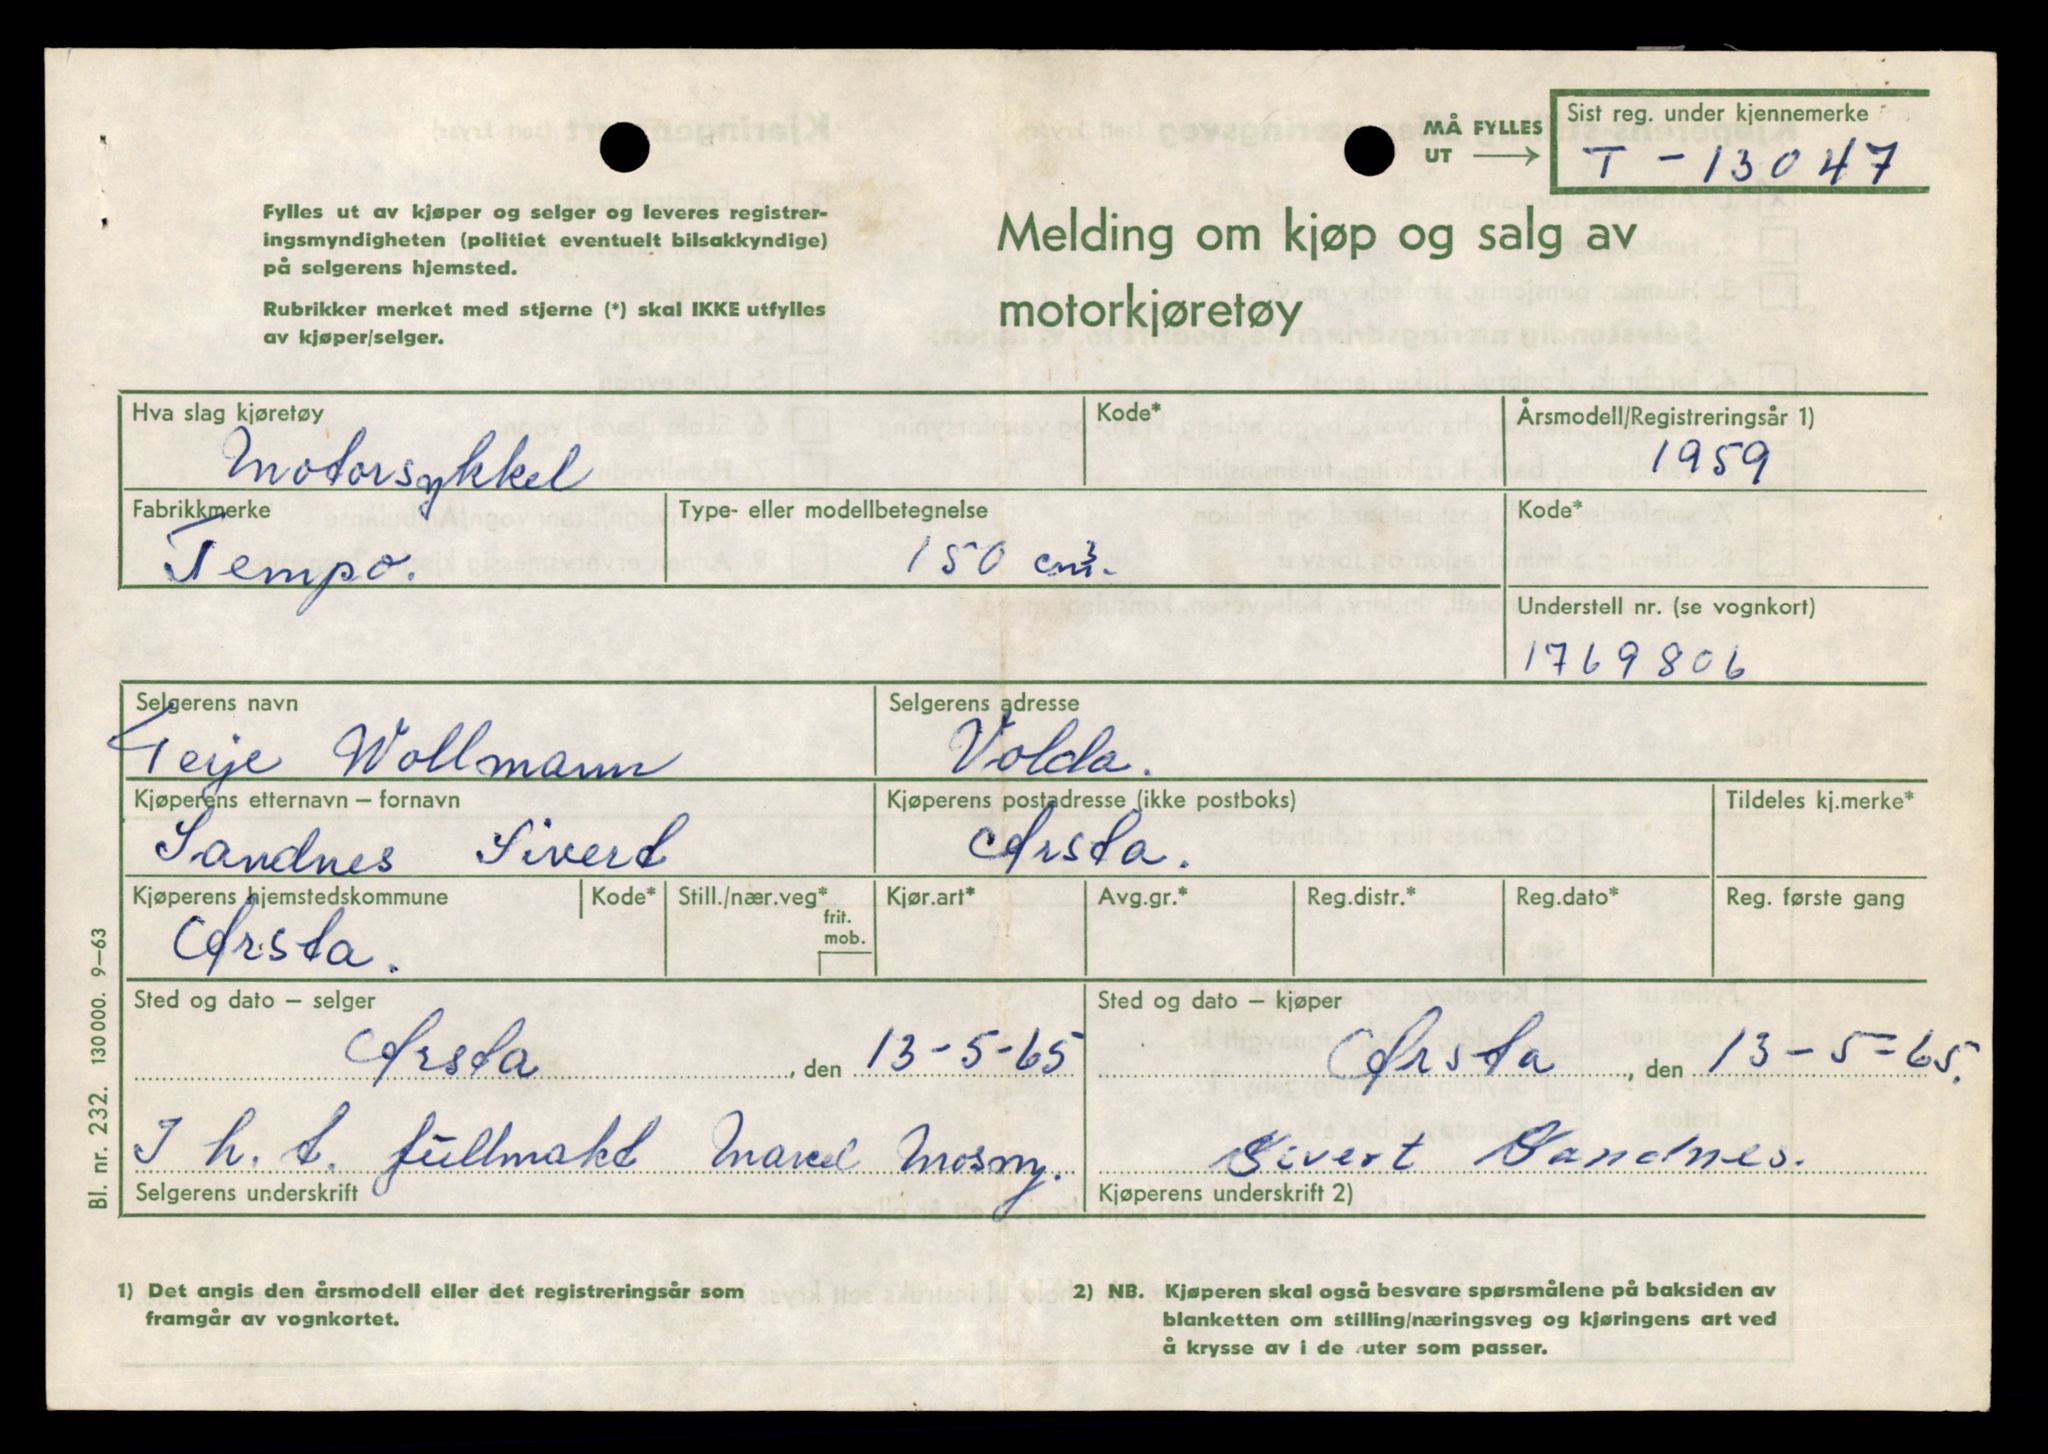 MÅ FYLLES
UT →
Sist reg. under kjennemerke
T - 13047
Fylles ut av kjøper og selger og leveres registrer-
ingsmyndigheten (politiet eventuelt bilsakkyndige)
på selgerens hjemsted.
Rubrikker merket med stjerne (*) skal IKKE utfylles
av kjøper/selger.
Melding om kjøp og salg av
motorkjøretøy
Hva slag kjøretøy
Motorsykkel
Kode*
Årsmodell/Registreringsår 1)
1959
Fabrikkmerke
Tempo.
Type- eller modellbetegnelse
150 cm³.
Kode*
Understell nr. (se vognkort)
1769806
Selgerens navn
Terje Wollmann
Selgerens adresse
Volda.
Kjøperens etternavn – fornavn
Sandnes Sivert
Kjøperens postadresse (ikke postboks)
Ørsta.
Tildeles kj.merke*
Kjøperens hjemstedskommune
Ørsta.
Kode*
Still./nær.veg*
frit.
mob.
Kjør.art*
Avg.gr.*
Reg.distr.*
Reg.dato*
Reg. første gang
Sted og dato – selger
Ørsta, den 13-5-65
Sted og dato – kjøper
Ørsta, den 13-5-65.
I h. t. fullmakt Marcel Mosny.
Selgerens underskrift
Sivert Sandnes.
Kjøperens underskrift 2)
Bl. nr. 232. 130 000. 9–63
1) Det angis den årsmodell eller det registreringsår som
framgår av vognkortet.
2) NB. Kjøperen skal også besvare spørsmålene på baksiden av
blanketten om stilling/næringsveg og kjøringens art ved
å krysse av i de uter som passer.